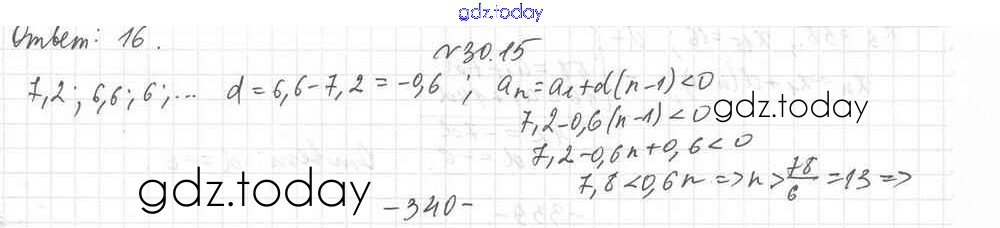 gdz.today
Ответ: 16.
№30.15
7,2; 6,6; 6; ... d = 6,6 - 7,2 = -0,6 ; aₙ = a₁ + d(n-1) < 0
7,2 - 0,6(n-1) < 0
gdz.today
7,2 - 0,6n + 0,6 < 0
7,8 < 0,6n => n > 78/6 = 13 =>
gdz.today
- 340 -